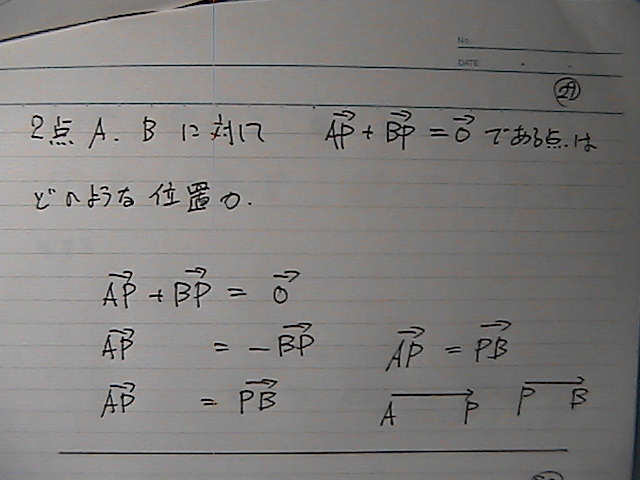 No.
DATE
2点 A. B に対して AP→ + BP→ = 0→ である点は
どのような位置か.
AP→ + BP→ = 0→
AP→ = -BP→ AP→ = PB→
AP→ = PB→ A P P B